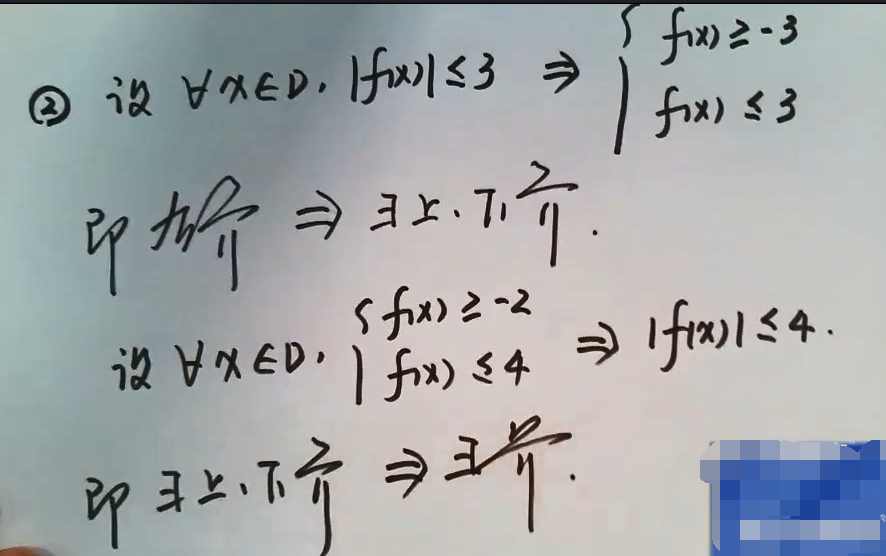 ② 设 ∀x∈D, |f(x)|≤3 ⇒ { f(x)≥-3
f(x)≤3
即 有界 ⇒ ∃上、下界.
设 ∀x∈D, { f(x)≥-2
f(x)≤4 ⇒ |f(x)|≤4.
即 ∃上、下界 ⇒ ∃界.